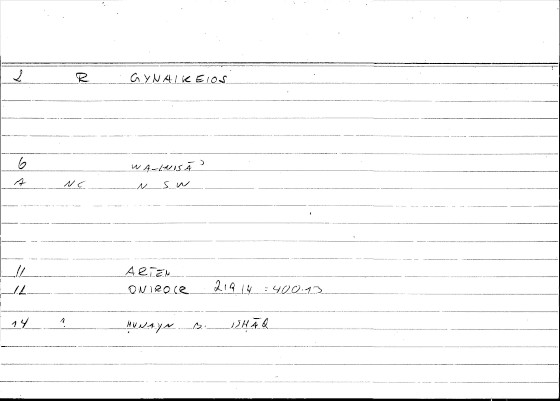 2 R GYNAIKEIOS
6 WA-NISĀʾ
A NC N S W
11 ARTEM
12 ONIROCR 219,4 : 400.13
14 1 ḤUNAYN B. ISḤĀQ